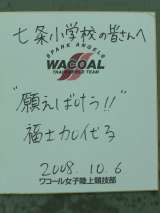 七条小学校の皆さんへ
SPARK ANGELS
WACOAL
TRACK & FIELD TEAM
"願えば叶う!!"
福士加代子
2008.10.6
ワコール女子陸上競技部